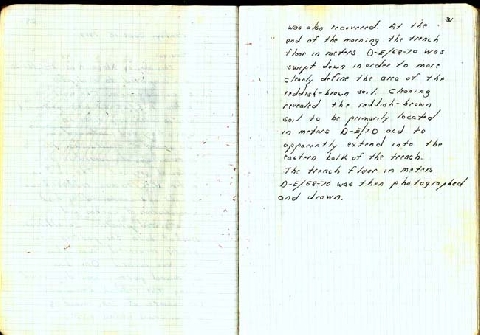 was also recovered. At the
end of the morning the trench
floor in meters D-E/68-70 was
swept down in order to more
clearly define the area of the
reddish-brown soil. Cleaning
revealed the reddish-brown
soil to be primarily located
in meters D-E/70 and to
apparently extend into the
eastern balk of the trench.
The trench floor in meters
D-E/68-70 was then photographed
and drawn.